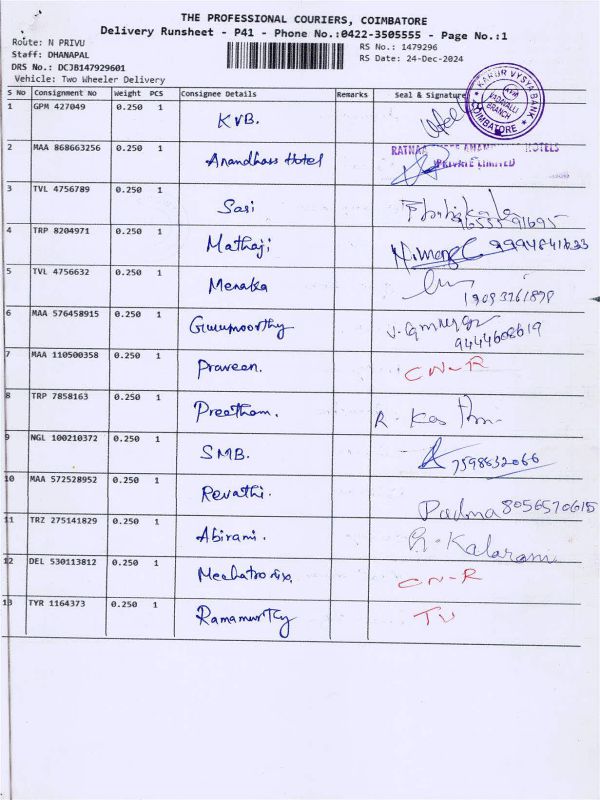 THE PROFESSIONAL COURIERS, COIMBATORE
Delivery Runsheet - P41 - Phone No.:0422-3505555 - Page No.:1
Route: N PRIVU
RS No.: 1479296
Staff: DHANAPAL
RS Date: 24-Dec-2024
DRS No.: DCJB147929601
Vehicle: Two Wheeler Delivery
S No Consignment No Weight PCS Consignee Details Remarks Seal & Signature
KARUR VYSYA BANK
VADAVALLI BRANCH
COIMBATORE
1 GPM 427049 0.250 1 KVB.
2 MAA 868663256 0.250 1 Anandhass Hotel
HOTELS
PRIVATE LIMITED
3 TVL 4756789 0.250 1 Sasi
4 TRP 8204971 0.250 1 Mathaji
5 TVL 4756632 0.250 1 Menaka
6 MAA 576458915 0.250 1 Gurumoorthy
9444608619
7 MAA 110500358 0.250 1 Praveen. CN-R
8 TRP 7858163 0.250 1 Preetham.
9 NGL 100210372 0.250 1 SMB. 7598632066
10 MAA 572528952 0.250 1 Revathi. Padma 8056570615
11 TRZ 275141829 0.250 1 Abirami. Kalarani
12 DEL 530113812 0.250 1 CN-R
13 TYR 1164373 0.250 1 Ramamurthy